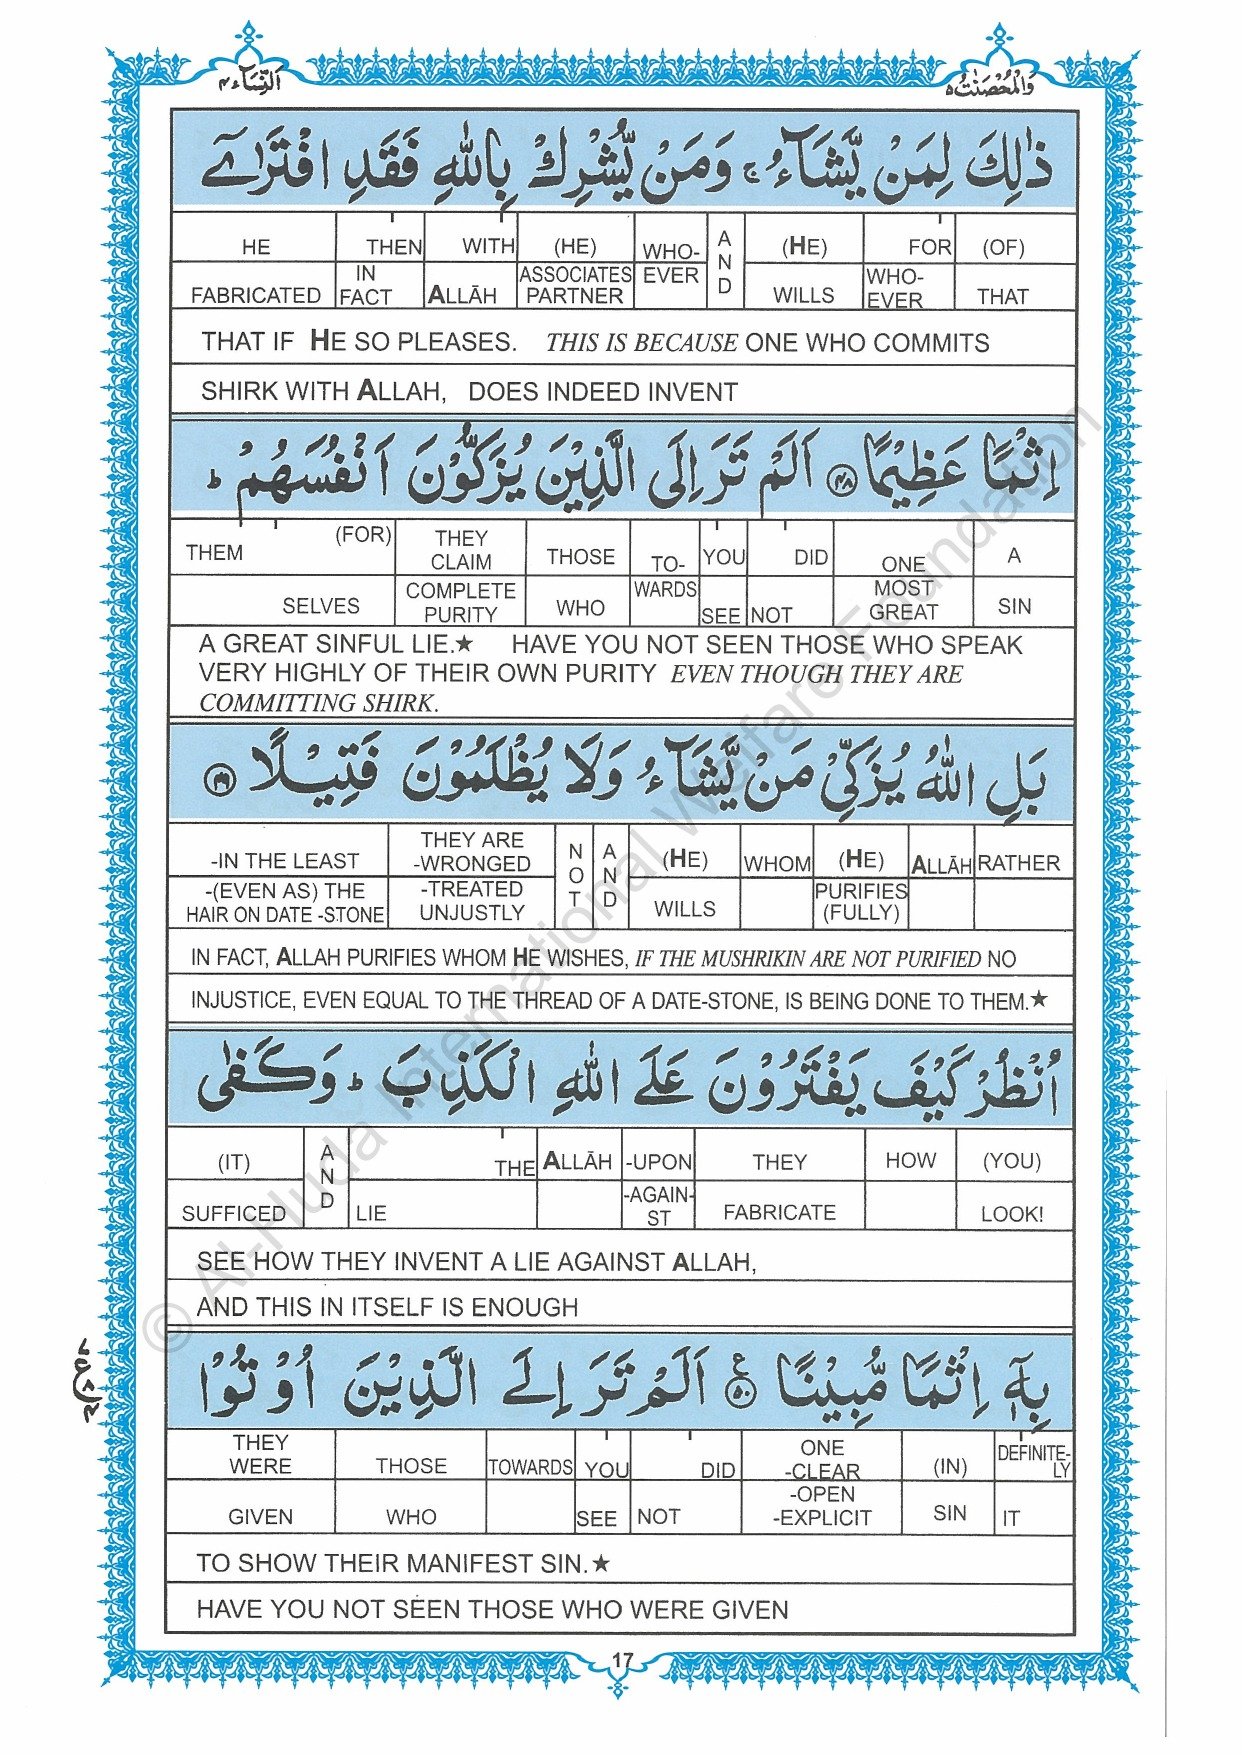 وَالْمُحْصَنٰتُ ٥
اَلنِّسَآء ٤
ذٰلِكَ لِمَنْ يَّشَآءُ ۚ وَمَنْ يُّشْرِكْ بِاللّٰهِ فَقَدِ افْتَرٰٓى
(OF) THAT | FOR WHO-EVER | (HE) WILLS | AND | WHO-EVER | (HE) ASSOCIATES PARTNER | WITH ALLĀH | THEN IN FACT | HE FABRICATED
THAT IF HE SO PLEASES. THIS IS BECAUSE ONE WHO COMMITS
SHIRK WITH ALLAH, DOES INDEED INVENT
اِثْمًا عَظِيْمًا ۝٤٨ اَلَمْ تَرَ اِلَى الَّذِيْنَ يُزَكُّوْنَ اَنْفُسَهُمْ ؕ
A SIN | ONE MOST GREAT | DID NOT | YOU SEE | TO-WARDS | THOSE WHO | THEY CLAIM COMPLETE PURITY | (FOR) THEM SELVES
A GREAT SINFUL LIE.★ HAVE YOU NOT SEEN THOSE WHO SPEAK
VERY HIGHLY OF THEIR OWN PURITY EVEN THOUGH THEY ARE
COMMITTING SHIRK.
بَلِ اللّٰهُ يُزَكِّيْ مَنْ يَّشَآءُ وَلَا يُظْلَمُوْنَ فَتِيْلًا ۝٤٩
RATHER | ALLĀH | (HE) PURIFIES (FULLY) | WHOM | (HE) WILLS | AND | NOT | THEY ARE -WRONGED -TREATED UNJUSTLY | -IN THE LEAST -(EVEN AS) THE HAIR ON DATE -STONE
IN FACT, ALLAH PURIFIES WHOM HE WISHES, IF THE MUSHRIKIN ARE NOT PURIFIED NO
INJUSTICE, EVEN EQUAL TO THE THREAD OF A DATE-STONE, IS BEING DONE TO THEM.★
اُنْظُرْ كَيْفَ يَفْتَرُوْنَ عَلَى اللّٰهِ الْكَذِبَ ؕ وَكَفٰى
(YOU) LOOK! | HOW | THEY FABRICATE | -UPON -AGAIN-ST | ALLĀH | THE LIE | AND | (IT) SUFFICED
SEE HOW THEY INVENT A LIE AGAINST ALLAH,
AND THIS IN ITSELF IS ENOUGH
بِهٖٓ اِثْمًا مُّبِيْنًا ۝٥٠ ع اَلَمْ تَرَ اِلَى الَّذِيْنَ اُوْتُوْا
DEFINITE-LY IT | (IN) SIN | ONE -CLEAR -OPEN -EXPLICIT | DID NOT | YOU SEE | TOWARDS | THOSE WHO | THEY WERE GIVEN
TO SHOW THEIR MANIFEST SIN.★
HAVE YOU NOT SEEN THOSE WHO WERE GIVEN
17
© Al-Huda International Welfare Foundation